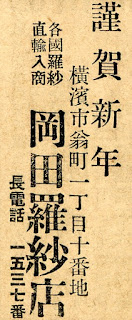 謹賀新年
橫濱市翁町一丁目十番地
各國羅紗
直輸入商
岡田羅紗店
長電話 一五三七番